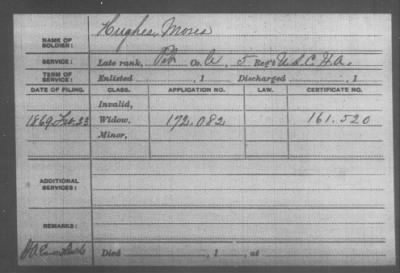 NAME OF SOLDIER: Hughes, Moses
SERVICE: Late rank, Pvt Co. A, 5 Reg't U.S.C.H.A.
TERM OF SERVICE: Enlisted , 1 Discharged , 1
DATE OF FILING. CLASS. APPLICATION NO. LAW. CERTIFICATE NO.
Invalid,
1869 Feb. 23 Widow, 172.082 161.520
Minor,
ADDITIONAL SERVICES:
REMARKS:
Died , 1 , at